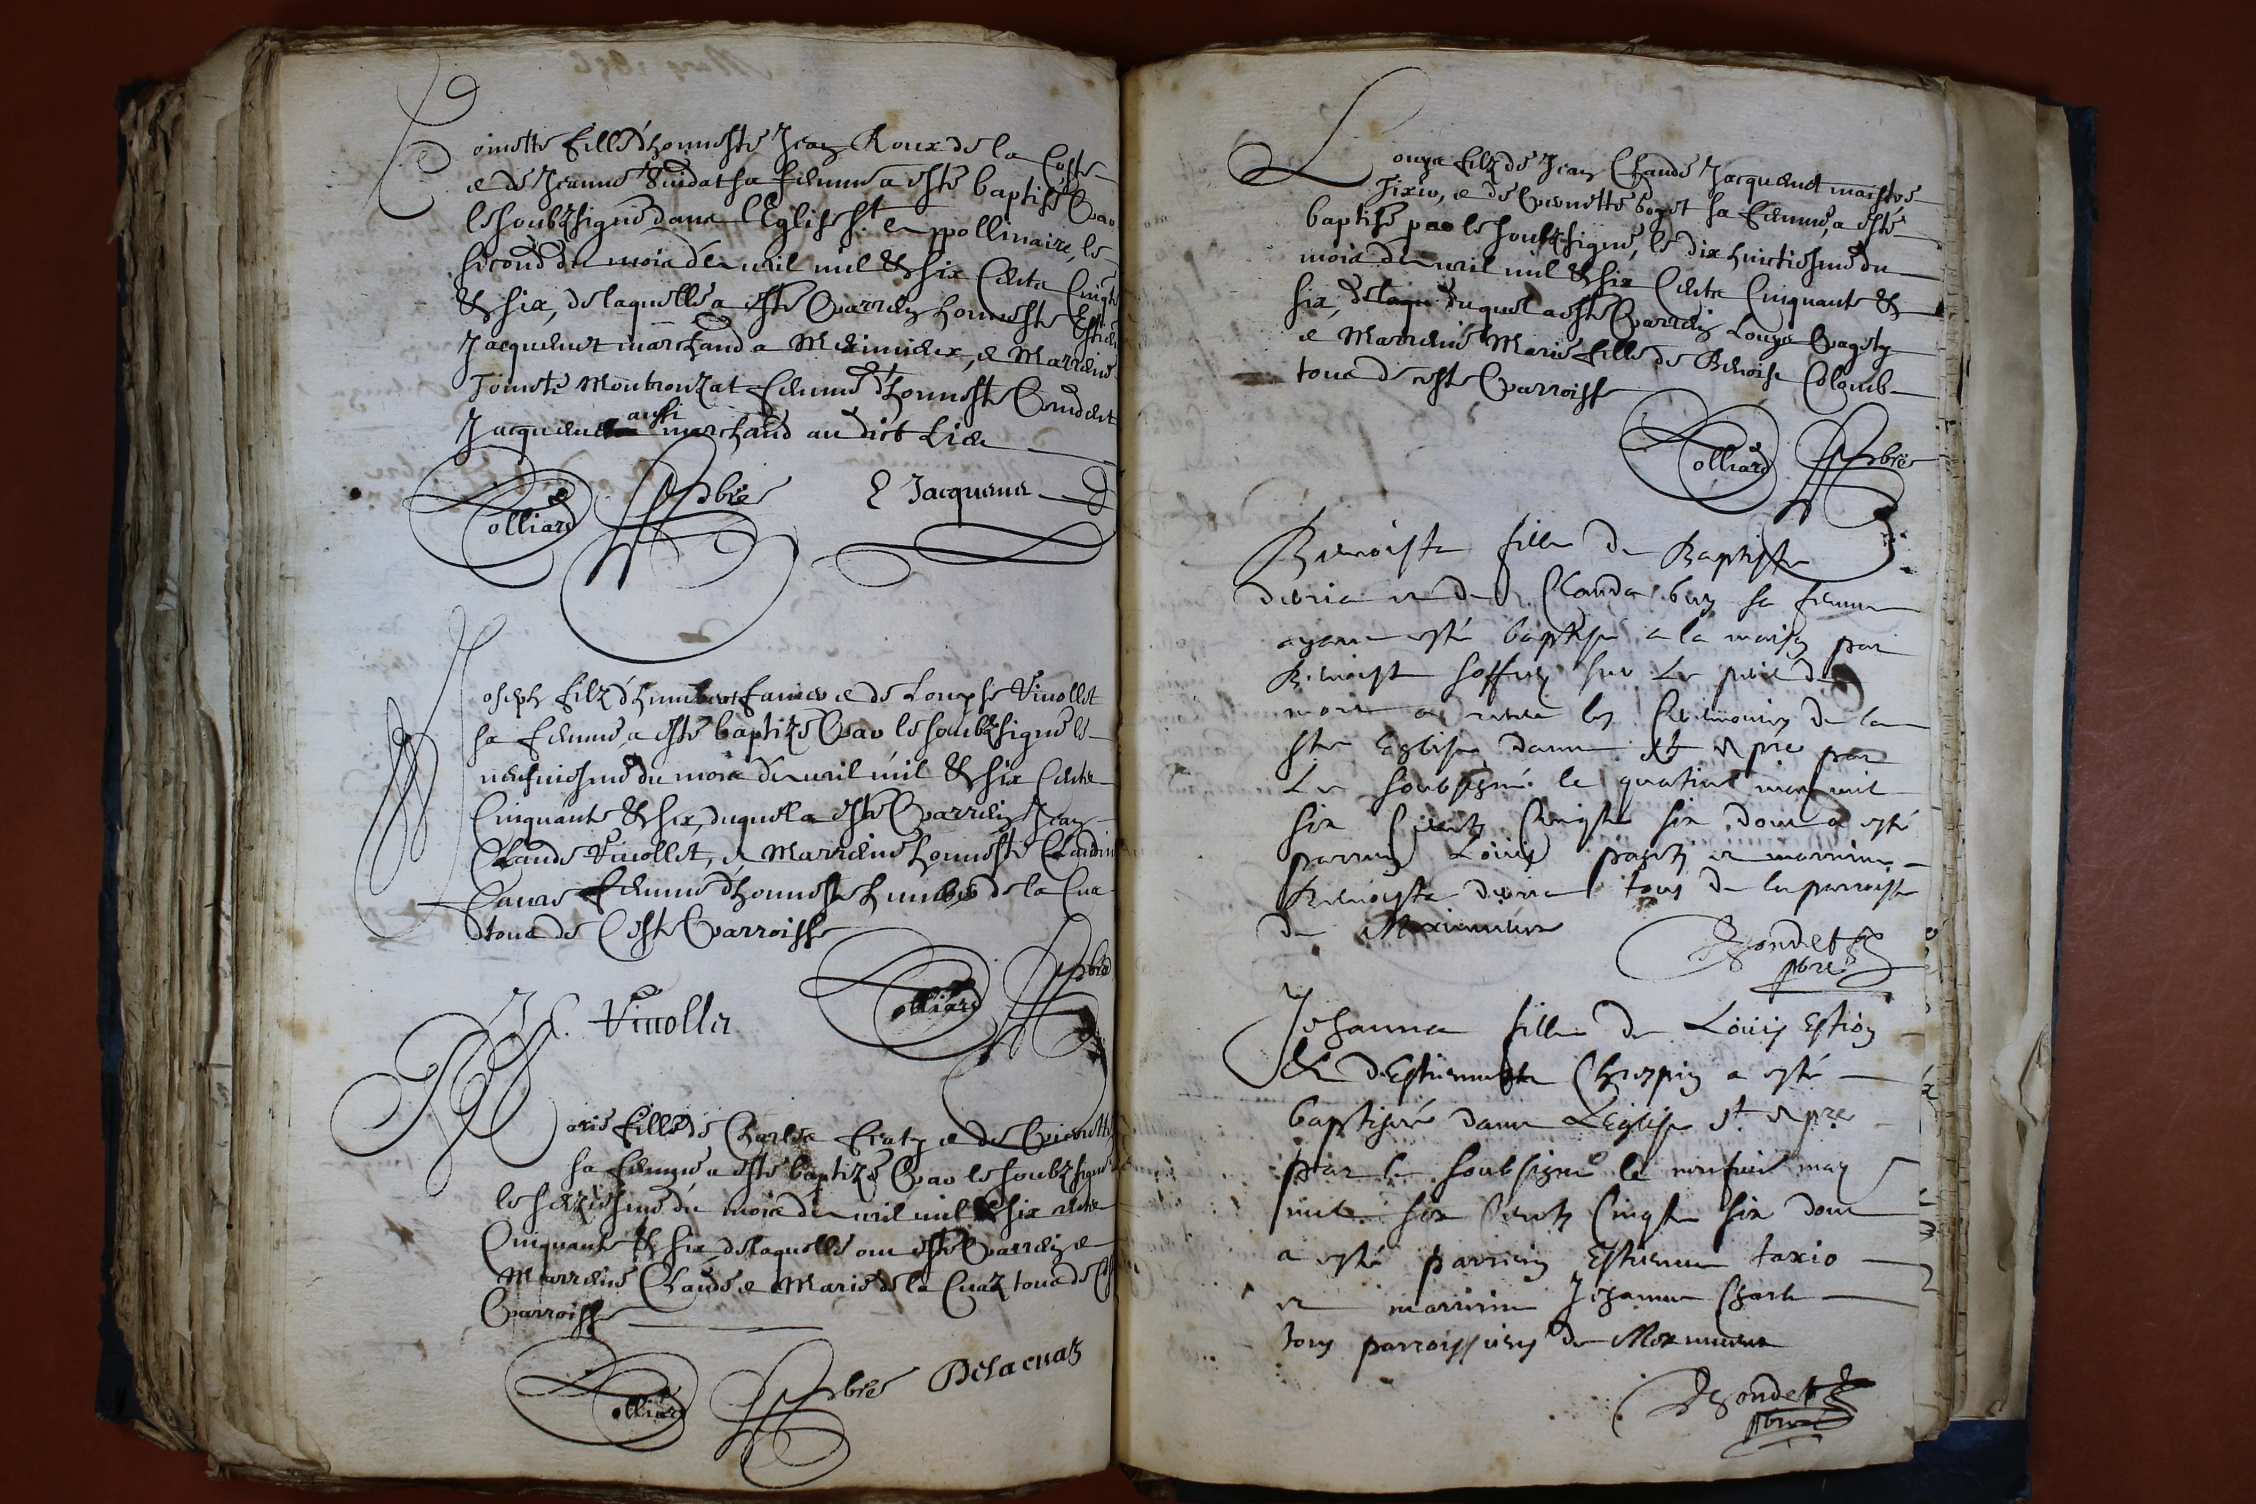 Toinette fille d'honneste Jean Roux de la Coste
e de Jeanne Guidat sa femme a esté baptisé Par
le soubzsigné dans l'Eglise St. Appollinaire, le
second du mois d'Avril mil & six Cents Cinqte
& six, de laquelle a esté Parrein honneste Estiene
Jacquemet marchand a Meximieux, e Marreine
Toinete Montrozat femme d'honneste Pondent
Jacquemet aussi marchand au dict Lieu
Tolliard Pbre E Jacquemet
Joseph filz d'humbert Favier e de Louyse Vivollet
sa femme, a esté baptizé Par le soubzsigné le
neufviesme du mois d'Avril mil & six Cents
Cinquante & six, duquel a esté Parrein Jean
Claude Vivollet, e Marreine honneste Claudine
femme d'honneste humber de la Cua
tous de Ceste Parroisse
J C. Vivollet Tolliard Pbre
Marie fille de Charles e de Pierrette
sa femme a esté baptizé Par le soubzsigné
le seziesme du mois d'Avril mil & six cents
Cinquante & six de laquelle ont esté Parrein e
Marreine Claude e Marie de la Cuaz tous de Ceste
Parroisse
Tolliard Pbre Delacuaz
Louys filz de Jean Claude Jacquemet maistre
Tixier, e de Pernette boget sa femme, a esté
baptisé par le soubzsigné, le dix huictiesme du
mois d'Avril mil & six Cents Cinquante &
six, delaqu duquel a esté Parrein Louys Pagety
e Marreine Marie fille de Benoist Colomb
tous de ceste Parroisse
Tolliard Pbre
Benoiste fille de Baptiste
et de Claude buy sa femme
ayant esté baptisé a la maison par
Benoist soffrey sur Le peril de
mort a receu les Ceremonies de la
Ste Eglise dans St
Le soubsigné le quatriesme may mil
six Cents Cinqte six dont a esté
parrein Louis pagety et marreine
Benoiste tous de la parroisse
de Meximieux
Rondet
pbre
Jehanne fille de Louis Estion
& d'Estiennette Chrespin a esté
baptisée dans L'Eglise St
par le soubsigné le neufvie may
mil six Cents Cinqte six dont
a esté parrein Estienne taxio
et marreine Jehanne Charle
tous parroissiens de Meximieux
Rondet
pbre